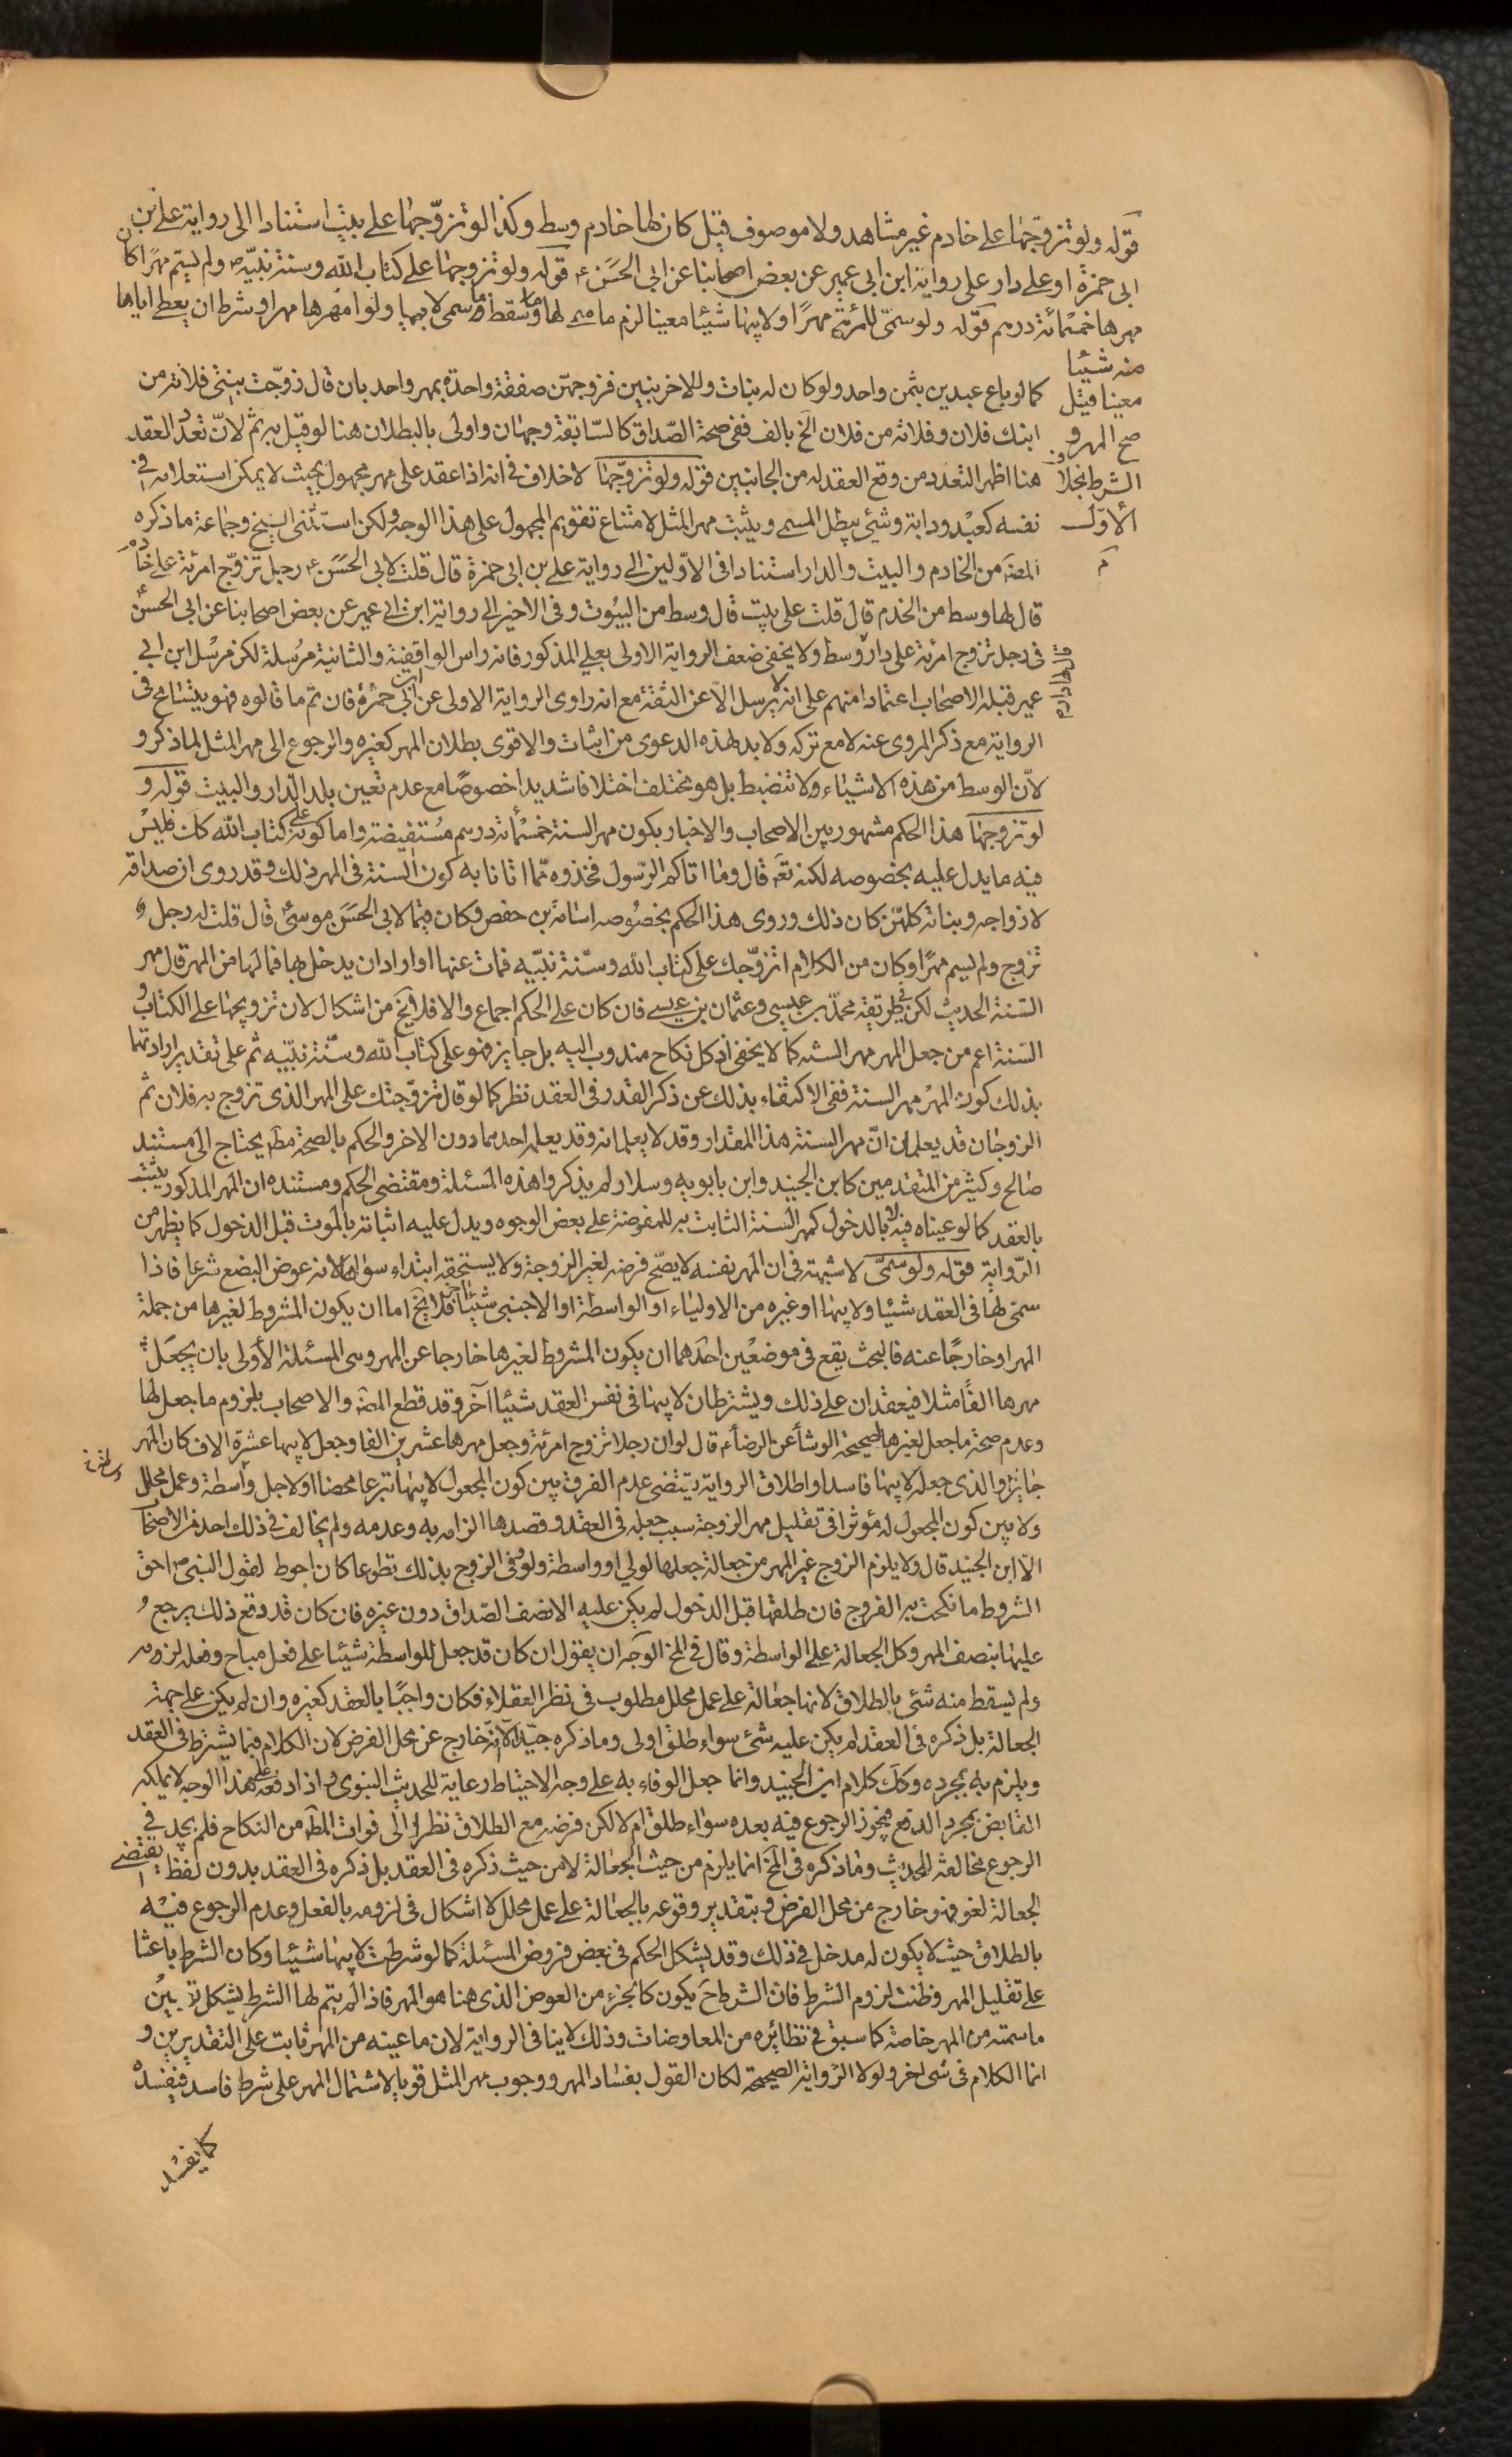 قوله ولو تزوجها على خادم غير مشاهد ولا موصوف قيل كان لها خادم وسط وكذا لو تزوّجها على بيت استنادا الى رواية على بن
ابى حمزة او على دار على رواية ابن ابى عمير عن بعض اصحابنا عن ابى الحسن ع قوله ولو تزوجها على كتاب الله وسنة نبيّه ص ولم يسم مهرًا كان
مهرها خمسمائة درهم قوله ولو سمّى للمرئة مهرًا ولابيها شيئا معينا لزم ما سمى لها وسقط ما سمى لابيها ولو امهرها مهرا وشرط ان يعطى اباها
منه شيئا
معينا قيل
صح المهر و
الشرط بخلاف
الأول
كما لو باع عبدين بثمن واحد ولو كان له بنات وللاخر بنين فزوجهنّ صفقة واحدة بمهر واحد بان قال زوّجت بنتى فلانة من
ابنك فلان وفلانة من فلان الخ بالف ففى صحة الصّداق كالسّابقة وجهان واولى بالبطلان هنا لو قيل به ثم لانّ تعدّد العقد
هنا اظهر لتعدد من وقع العقد له من الجانبين قوله ولو تزوّجها لا خلاف فى انه اذا عقد على مهر مجهول بحيث لا يمكن استعلامه فى
نفسه كعبد ودابة وشئ يبطل المسمى ويثبت مهر المثل لامتناع تقويم المجهول على هذا الوجه ولكن استثنى الشيخ وجماعة ما ذكره
المصَ من الخادم والبيت والدار استنادا فى الاوّلين الى رواية على بن ابى حمزة قال قلت لابى الحسن ع رجل تزوّج امرئة على خادم
قال لها وسط من الخدم قال قلت على بيت قال وسط من البيوت وفى الاخير الى رواية ابن ابى عمير عن بعض اصحابنا عن ابى الحسن ع
فى رجل تزوج امرئة على دار وسط ولا يخفى ضعف الرواية الاولى بعلى المذكور فانه راس الواقفية والثانية مرسلة لكن مرسل ابن ابى
عمير قبله الاصحاب اعتمادا منهم على انه لا يرسل الا عن الثقة مع انه راوى الرواية الاولى عن ابن ابى حمزة فان تم ما قالوه فهو يتسامح فى
الرواية مع ذكر المروى عنه لا مع تركه ولا بد لهذه الدعوى من اثبات والاقوى بطلان المهر كغيره والرجوع الى مهر المثل لما ذكر و
لانّ الوسط من هذه الاشياء ولا تنضبط بل هو مختلف اختلافا شديدا خصوصًا مع عدم تعيين بلد الدّار والبيت قوله و
لو تزوجها هذا الحكم مشهور بين الاصحاب والاخبار بكون مهر السنة خمسمأة درهم مستفيضة واما كونه على كتاب الله كك فليس
فيه ما يدل عليه بخصوصه لكنه تعَ قال وما اتاكم الرّسول فخذوه ممّا اتانا به كون السّنة فى المهر ذلك وقد روى ان صداقه
لازواجه وبناته كلهنّ كان ذلك وروى هذا الحكم بخصوصه اسامة بن حفص وكان قيّما لابى الحسن موسى ع قال قلت له رجل
تزوج ولم يسم مهرًا وكان من الكلام اتزوّجك على كتاب الله وسنّة نبيّه فمات عنها او اراد ان يدخل بها فما لها من المهر قال مهر
السّنة الحديث لكن فى طريقه محمد بن عيسى وعثمان بن عيسى فان كان على الحكم اجماع والا فلا يخ من اشكال لان تزويجها على الكتاب و
السّنة اعم من جعل المهر مهر السنة كما لا يخفى اذ كل نكاح مندوب اليه بل جايز فهو على كتاب الله وسنّة نبيّه ثم على تقدير ارادتهما
بذلك كون المهر مهر السنة ففى الاكتفاء بذلك عن ذكر القدر فى العقد نظر كما لو قال تزوّجتك على المهر الذى تزوج به فلان ثم
الزوجان قد يعلمان انّ مهر السنة هذا المقدار وقد لا يعلمانه وقد يعلمه احدهما دون الاخر والحكم بالصحة مطَ يحتاج الى مستند
صالح وكثير من المتقدمين كابن الجنيد وابن بابويه وسلار لم يذكروا هذه المسئلة ومقتضى الحكم ومستنده ان المهر المذكور يثبت
بالعقد كما لو عيناه فيه لا بالدخول كمهر السنة الثابت به للمفوضة على بعض الوجوه ويدل عليه اثباته بالموت قبل الدخول كما يظهر من
الرّواية قوله ولو سمّى لا شبهة فى ان المهر نفسه لا يصحّ فرضه لغير الزوجة ولا يستحقه ابتداء سواها لانه عوض البضع شرعا فاذا
سمى لها فى العقد شيئا ولابيها او غيره من الاولياء او الواسطة او الاجنبى شيئا اخر فلا يخ اما ان يكون المشروط لغيرها من جملة
المهر او خارجًا عنه فالبحث يقع فى موضعين احدهما ان يكون المشروط لغيرها خارجا عن المهر وهى المسئلة الأولى بان يجعل
مهرها الفًا مثلا فيعقدان على ذلك ويشترطان لابيها فى نفس العقد شيئا آخر وقد قطع المصَ والاصحاب بلزوم ما جعل لها
وعدم صحة ما جعل لغيرها لصحيحة الوشاء عن الرضا ع قال لو ان رجلا تزوج امرئة وجعل مهرها عشرين الفا وجعل لابيها عشرة الاف كان المهر
جايزا والذى جعله لابيها فاسدا واطلاق الرواية يقتضى عدم الفرق بين كون المجعول لابيها تبرعا محضا او لاجل واسطة وعمل محلل
ولا بين كون المجعول له مؤثرا فى تقليل مهر الزوجة بسبب جعله فى العقد وقصدها الزامه به وعدمه ولم يخالف فى ذلك احد من الاصحاب
الّا ابن الجنيد قال ولا يلزم الزوج غير المهر من جعالة جعلها لولى او واسطة ولو وفى الزوج بذلك تطوعا كان احوط لقول النبى ص احق
الشروط ما نكحت به الفروج فان طلقها قبل الدخول لم يكن عليه الا نصف الصّداق دون غيره فان كان قد دفع ذلك يرجع
عليها بنصف المهر وكل الجعالة على الواسطة وقال فى المخ الوجه ان يقول ان كان قد جعل للواسطة شيئا على فعل مباح وفعله لزومه
ولم يسقط منه شئ بالطلاق لانها جعالة على عمل محلل مطلوب فى نظر العقلاء فكان واجبًا بالعقد كغيره وان لم يكن على جهة
الجعالة بل ذكره فى العقد لم يكن عليه شئ سواء طلق او لى وما ذكره جيّد الّا انّه خارج عن محل الفرض لان الكلام فيما يشترط فى العقد
ويلزم به بمجرده وكك كلام ابن الجنيد وانما جعل الوفاء به على وجه الاحتياط رعاية للحديث النبوى واذا دفعه على هذا الوجه لا يملكه
القابض بمجرد الدفع فيجوز الرجوع فيه بعده سواء طلق ام لا لكن فرضه مع الطلاق نظرا الى فوات المطَ من النكاح فلم يجد فى
الرجوع مخالفة للحديث وما ذكره فى المخ انما يلزم من حيث الجعالة لا من حيث ذكره فى العقد بل ذكره فى العقد بدون لفظ يقتضى
الجعالة لغو فهو خارج من محل الفرض وبتقدير وقوعه بالجعالة على عمل محلل لا اشكال فى لزومه بالفعل وعدم الرجوع فيه
بالطلاق حيث لا يكون له مدخل فى ذلك وقد يشكل الحكم فى بعض فروض المسئلة كما لو شرطت لابيها شيئا وكان الشرط باعثا
على تقليل المهر وظنت لزوم الشرط فان الشرط حَ يكون كالجزء من العوض الذى هنا هو المهر فاذا لم يتم لها الشرط يشكل تعيين
ما سمته من المهر خاصة كما سبق فى نظائره من المعاوضات وذلك لا ينافى الرواية لان ما عينه من المهر ثابت على التقديرين و
انما الكلام فى شئ اخر ولولا الرّواية الصحيحة لكان القول بفساد المهر ووجوب مهر المثل قويا لاشتمال المهر على شرط فاسد فيفسد
كما يفسد